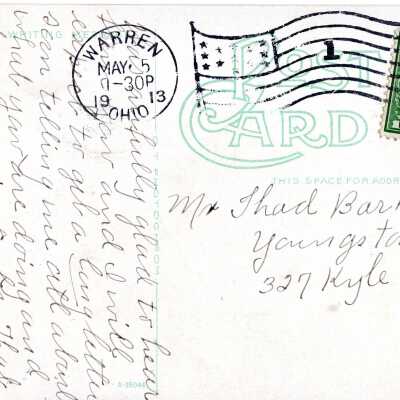 WARREN
MAY 5
-30P
19 13
OHIO
1
POST
CARD
WRITING
THIS SPACE FOR ADDR
Mr Thad Bar
Youngsto
327 Kyle
fully glad to hear
and I will
to get a long letter
soon telling me all about
what you are doing and